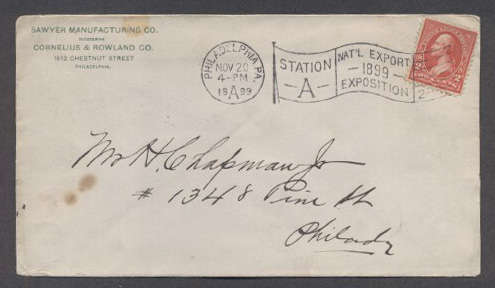 SAWYER MANUFACTURING CO.
SUCCESSORS
CORNELIUS & ROWLAND CO.
1612 CHESTNUT STREET
PHILADELPHIA.
PHILADELPHIA, PA.
NOV 20
4-PM
1899
A
STATION
-A-
NAT'L EXPORT
-1899-
EXPOSITION
2
Mr H. Chapman Jr
# 1348 Pine St
Philada